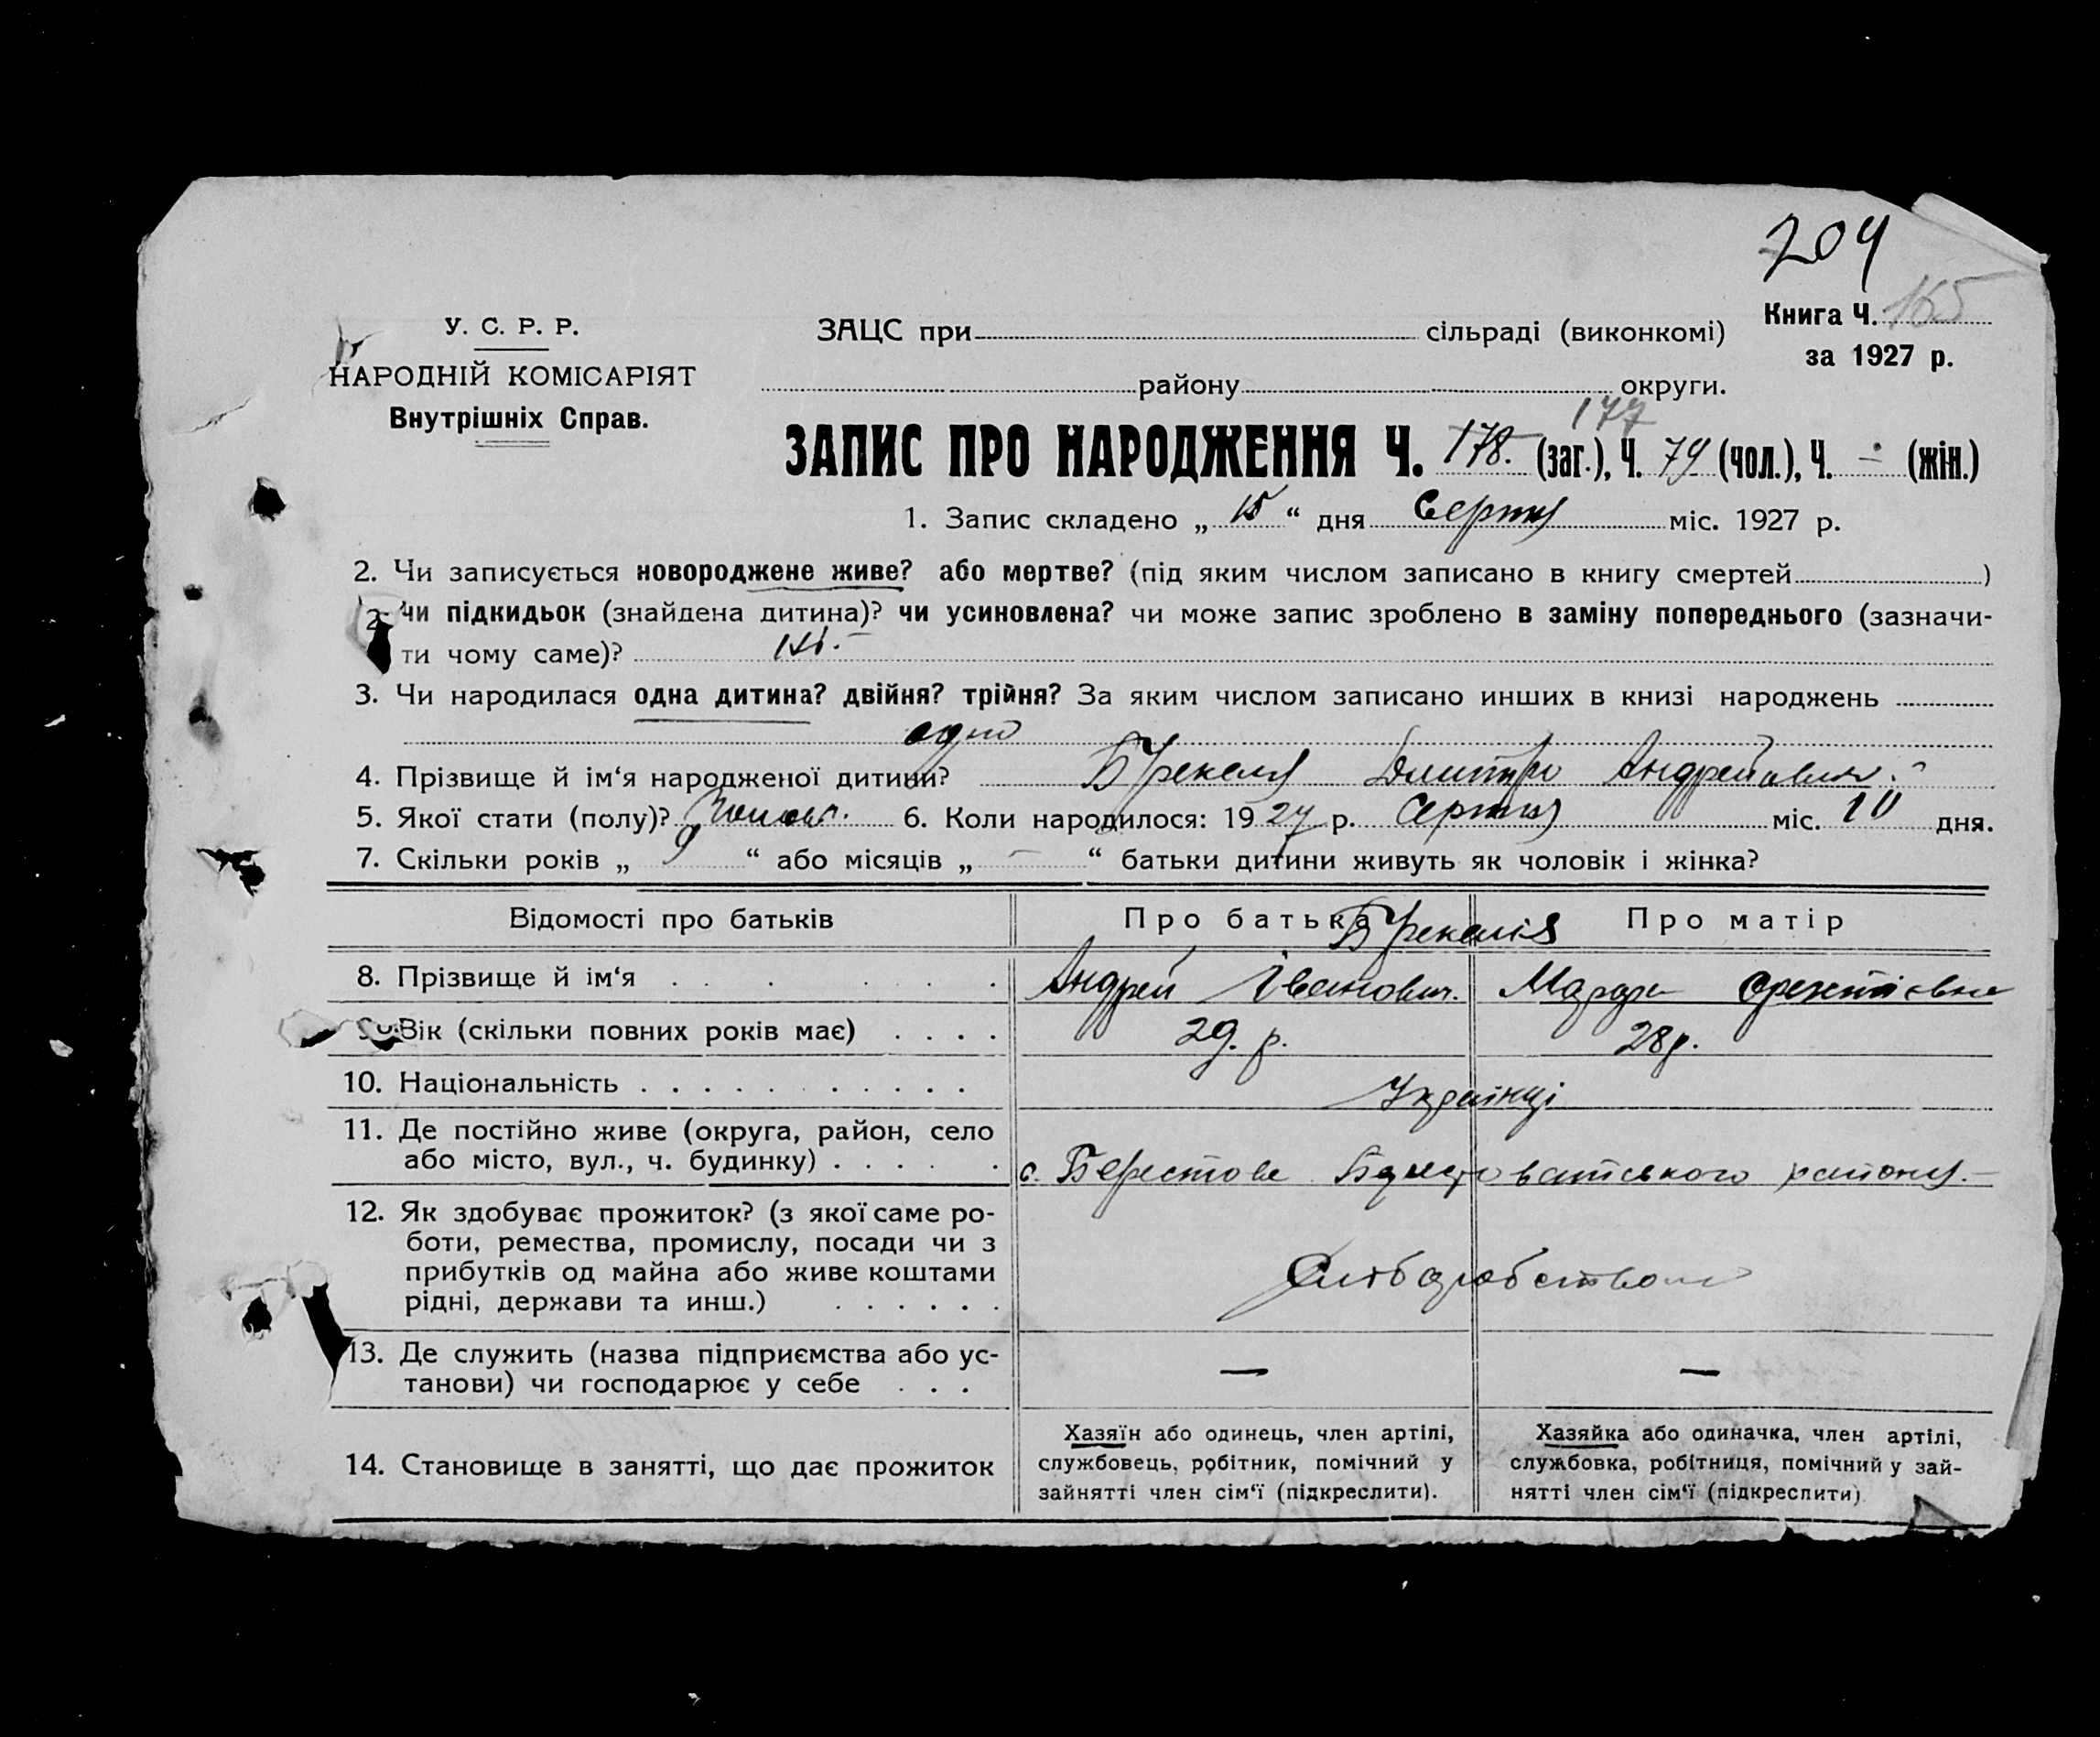 204
У. С. Р. Р.
НАРОДНІЙ КОМІСАРІЯТ
Внутрішніх Справ.
ЗАЦС при сільраді (виконкомі)
району округи.
Книга Ч. 165
за 1927 р.
177
ЗАПИС ПРО НАРОДЖЕННЯ Ч. 178. (заг.), Ч. 79 (чол.), Ч. - (жін.)
1. Запис складено „ 15 “ дня Серпня міс. 1927 р.
2. Чи записується новороджене живе? або мертве? (під яким числом записано в книгу смертей )
2. чи підкидьок (знайдена дитина)? чи усиновлена? чи може запис зроблено в заміну попереднього (зазначи-
ти чому саме)? Ні. –
3. Чи народилася одна дитина? двійня? трійня? За яким числом записано инших в книзі народжень
одно
4. Прізвище й ім‘я народженої дитини? Дмитро Андрейович.
5. Якої стати (полу)? 6. Коли народилося: 1927 р. Серпня міс. 10 дня.
7. Скільки років „ 9 “ або місяців „ – “ батьки дитини живуть як чоловік і жінка?
Відомості про батьків Про батька Про матір
8. Прізвище й ім‘я Андрей Іванович.
9. Вік (скільки повних років має) 29. р. 28 р.
10. Національність Українці
11. Де постійно живе (округа, район, село
або місто, вул., ч. будинку) с. Берестове району. –
12. Як здобуває прожиток? (з якої саме ро-
боти, ремества, промислу, посади чи з
прибутків од майна або живе коштами
рідні, держави та инш.) Хліборобством
13. Де служить (назва підприємства або ус-
танови) чи господарює у себе — —
14. Становище в занятті, що дає прожиток
Хазяїн або одинець, член артілі,
службовець, робітник, помічний у
зайнятті член сім‘ї (підкреслити).
Хазяйка або одиначка, член артілі,
службовка, робітниця, помічний у зай-
нятті член сім‘ї (підкреслити)